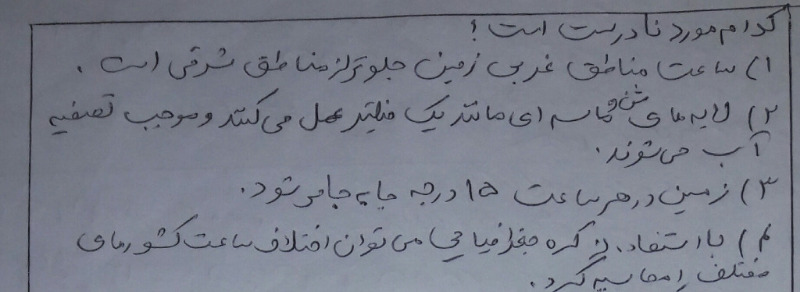 کدام مورد نادرست است؟
۱) ساعت مناطق غربی زمین جلوتر از مناطق شرقی است.
۲) لایه های شن و ماسه ای مانند یک فیلتر عمل می کنند و موجب تصفیه
آب می شوند.
۳) زمین در هر ساعت ۱۵ درجه جابه جا می شود.
۴) با استفاده از کره جغرافیایی می توان اختلاف ساعت کشورهای
مختلف را محاسبه کرد.